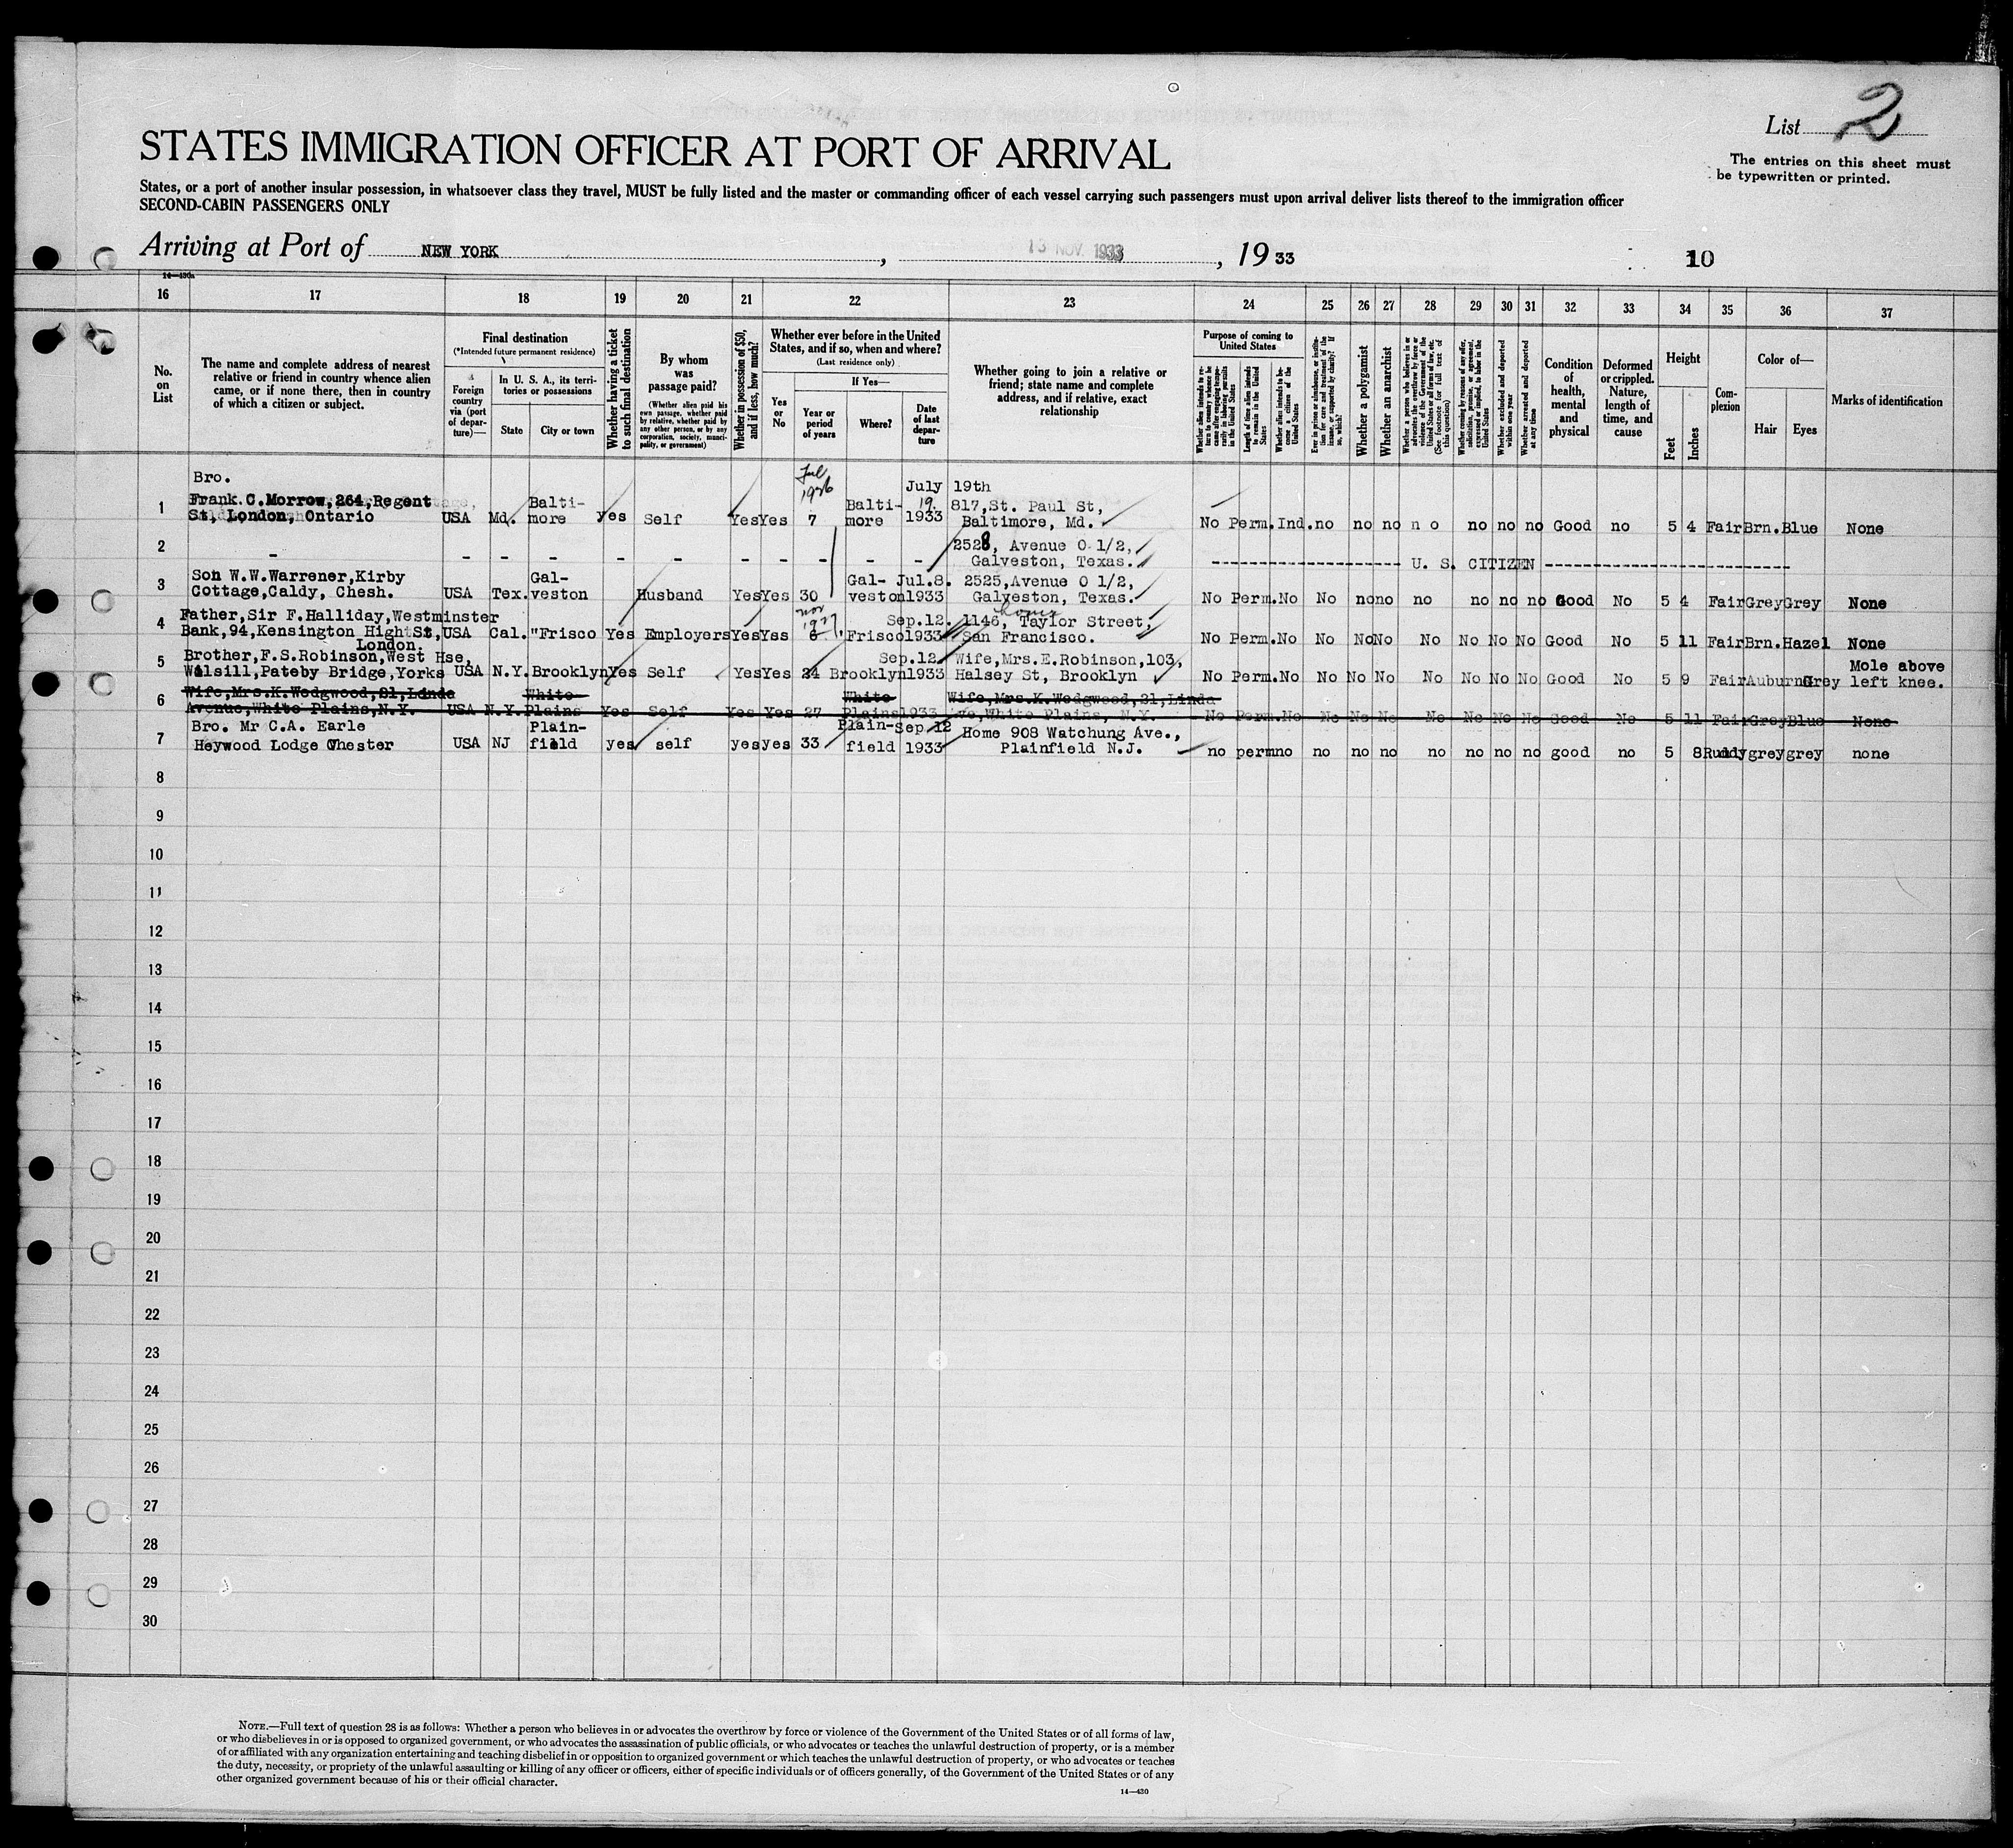 List 2
The entries on this sheet must
be typewritten or printed.
STATES IMMIGRATION OFFICER AT PORT OF ARRIVAL
States, or a port of another insular possession, in whatsoever class they travel, MUST be fully listed and the master or commanding officer of each vessel carrying such passengers must upon arrival deliver lists thereof to the immigration officer
SECOND-CABIN PASSENGERS ONLY
Arriving at Port of NEW YORK, 13 NOV. 1933, 19 33
10
14—430a
16 17 18 19 20 21 22 23 24 25 26 27 28 29 30 31 32 33 34 35 36 37
No. on List
The name and complete address of nearest
relative or friend in country whence alien
came, or if none there, then in country
of which a citizen or subject.
Final destination
(*Intended future permanent residence)
Foreign country via (port of departure)—
In U. S. A., its territories or possessions
State
City or town
Whether having a ticket to such final destination
By whom was passage paid?
(Whether alien paid his own passage, whether paid by relative, whether paid by any other person, or by any corporation, society, municipality, or government)
Whether in possession of $50, and if less, how much?
Whether ever before in the United
States, and if so, when and where?
(Last residence only)
Yes or No
If Yes—
Year or period of years
Where?
Date of last departure
Whether going to join a relative or
friend; state name and complete
address, and if relative, exact
relationship
Purpose of coming to
United States
Length of time alien intends to remain in the United States
Whether alien intends to become a citizen of the United States
Whether a polygamist
Whether an anarchist
(See footnote for full text of this question)
Whether excluded and deported within one year
Whether arrested and deported at any time
Condition of health, mental and physical
Deformed or crippled. Nature, length of time, and cause
Height
Feet
Inches
Complexion
Color of—
Hair
Eyes
Marks of identification
1 Bro. Frank C. Morrow, 264, Regent St, London, Ontario USA Md. Baltimore Yes Self Yes Yes Jul 1926 7 Baltimore July 19 1933 19th 817, St. Paul St, Baltimore, Md. No Perm. Ind. no no no n o no no no Good no 5 4 Fair Brn. Blue None
2 - - - - - - - - - - - 2528, Avenue O 1/2, Galveston, Texas. ---- U. S. CITIZEN ----
3 Son W.W.Warrener, Kirby Cottage, Caldy, Chesh. USA Tex. Galveston Husband Yes Yes 30 Galveston Jul.8. 1933 2525, Avenue O 1/2, Galveston, Texas. No Perm. No No no no no no no no Good No 5 4 Fair Grey Grey None
4 Father, Sir F.Halliday, Westminster Bank, 94, Kensington High St, London. USA Cal. "Frisco Yes Employers Yes Yes Nov 1927 6 'Frisco Sep.12. 1933 home 1146, Taylor Street, San Francisco. No Perm. No No No No No No No No Good No 5 11 Fair Brn. Hazel None
5 Brother, F.S.Robinson, West Hse, Wilsill, Pateby Bridge, Yorks USA N.Y. Brooklyn Yes Self Yes Yes 24 Brooklyn Sep.12. 1933 Wife, Mrs.E.Robinson, 103, Halsey St, Brooklyn No Perm. No No No No No No No No Good No 5 9 Fair Auburn Grey Mole above left knee.
6 Wife, Mrs.K.Wedgwood, 21, Linda Avenue, White Plains, N.Y. USA N.Y. White Plains Yes Self Yes Yes 27 White Plains 1933 Wife, Mrs.K.Wedgwood, 21, Linda Ave, White Plains, N.Y. No Perm. No No No No No No No No Good No 5 11 Fair Grey Blue None
7 Bro. Mr C.A. Earle Heywood Lodge Chester USA NJ Plainfield yes self yes yes 33 Plainfield Sep 12 1933 Home 908 Watchung Ave., Plainfield N.J. no perm no no no no no no no no good no 5 8 Ruddy grey grey none
8
9
10
11
12
13
14
15
16
17
18
19
20
21
22
23
24
25
26
27
28
29
30
NOTE.—Full text of question 28 is as follows: Whether a person who believes in or advocates the overthrow by force or violence of the Government of the United States or of all forms of law,
or who disbelieves in or is opposed to organized government, or who advocates the assassination of public officials, or who advocates or teaches the unlawful destruction of property, or is a member
of or affiliated with any organization entertaining and teaching disbelief in or opposition to organized government or which teaches the unlawful destruction of property, or who advocates or teaches
the duty, necessity, or propriety of the unlawful assaulting or killing of any officer or officers, either of specific individuals or of officers generally, of the Government of the United States or of any
other organized government because of his or their official character.
14—430